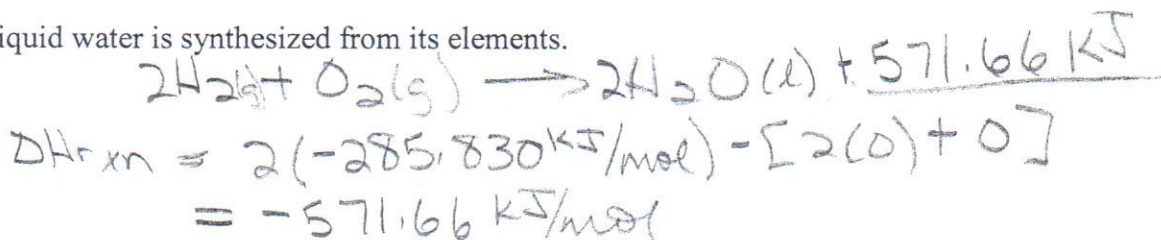 iquid water is synthesized from its elements.
2H2(g) + O2(g) → 2H2O(l) + 571.66 KJ
DHrxn = 2(-285.830 KJ/mol) - [2(0) + 0]
= -571.66 KJ/mol